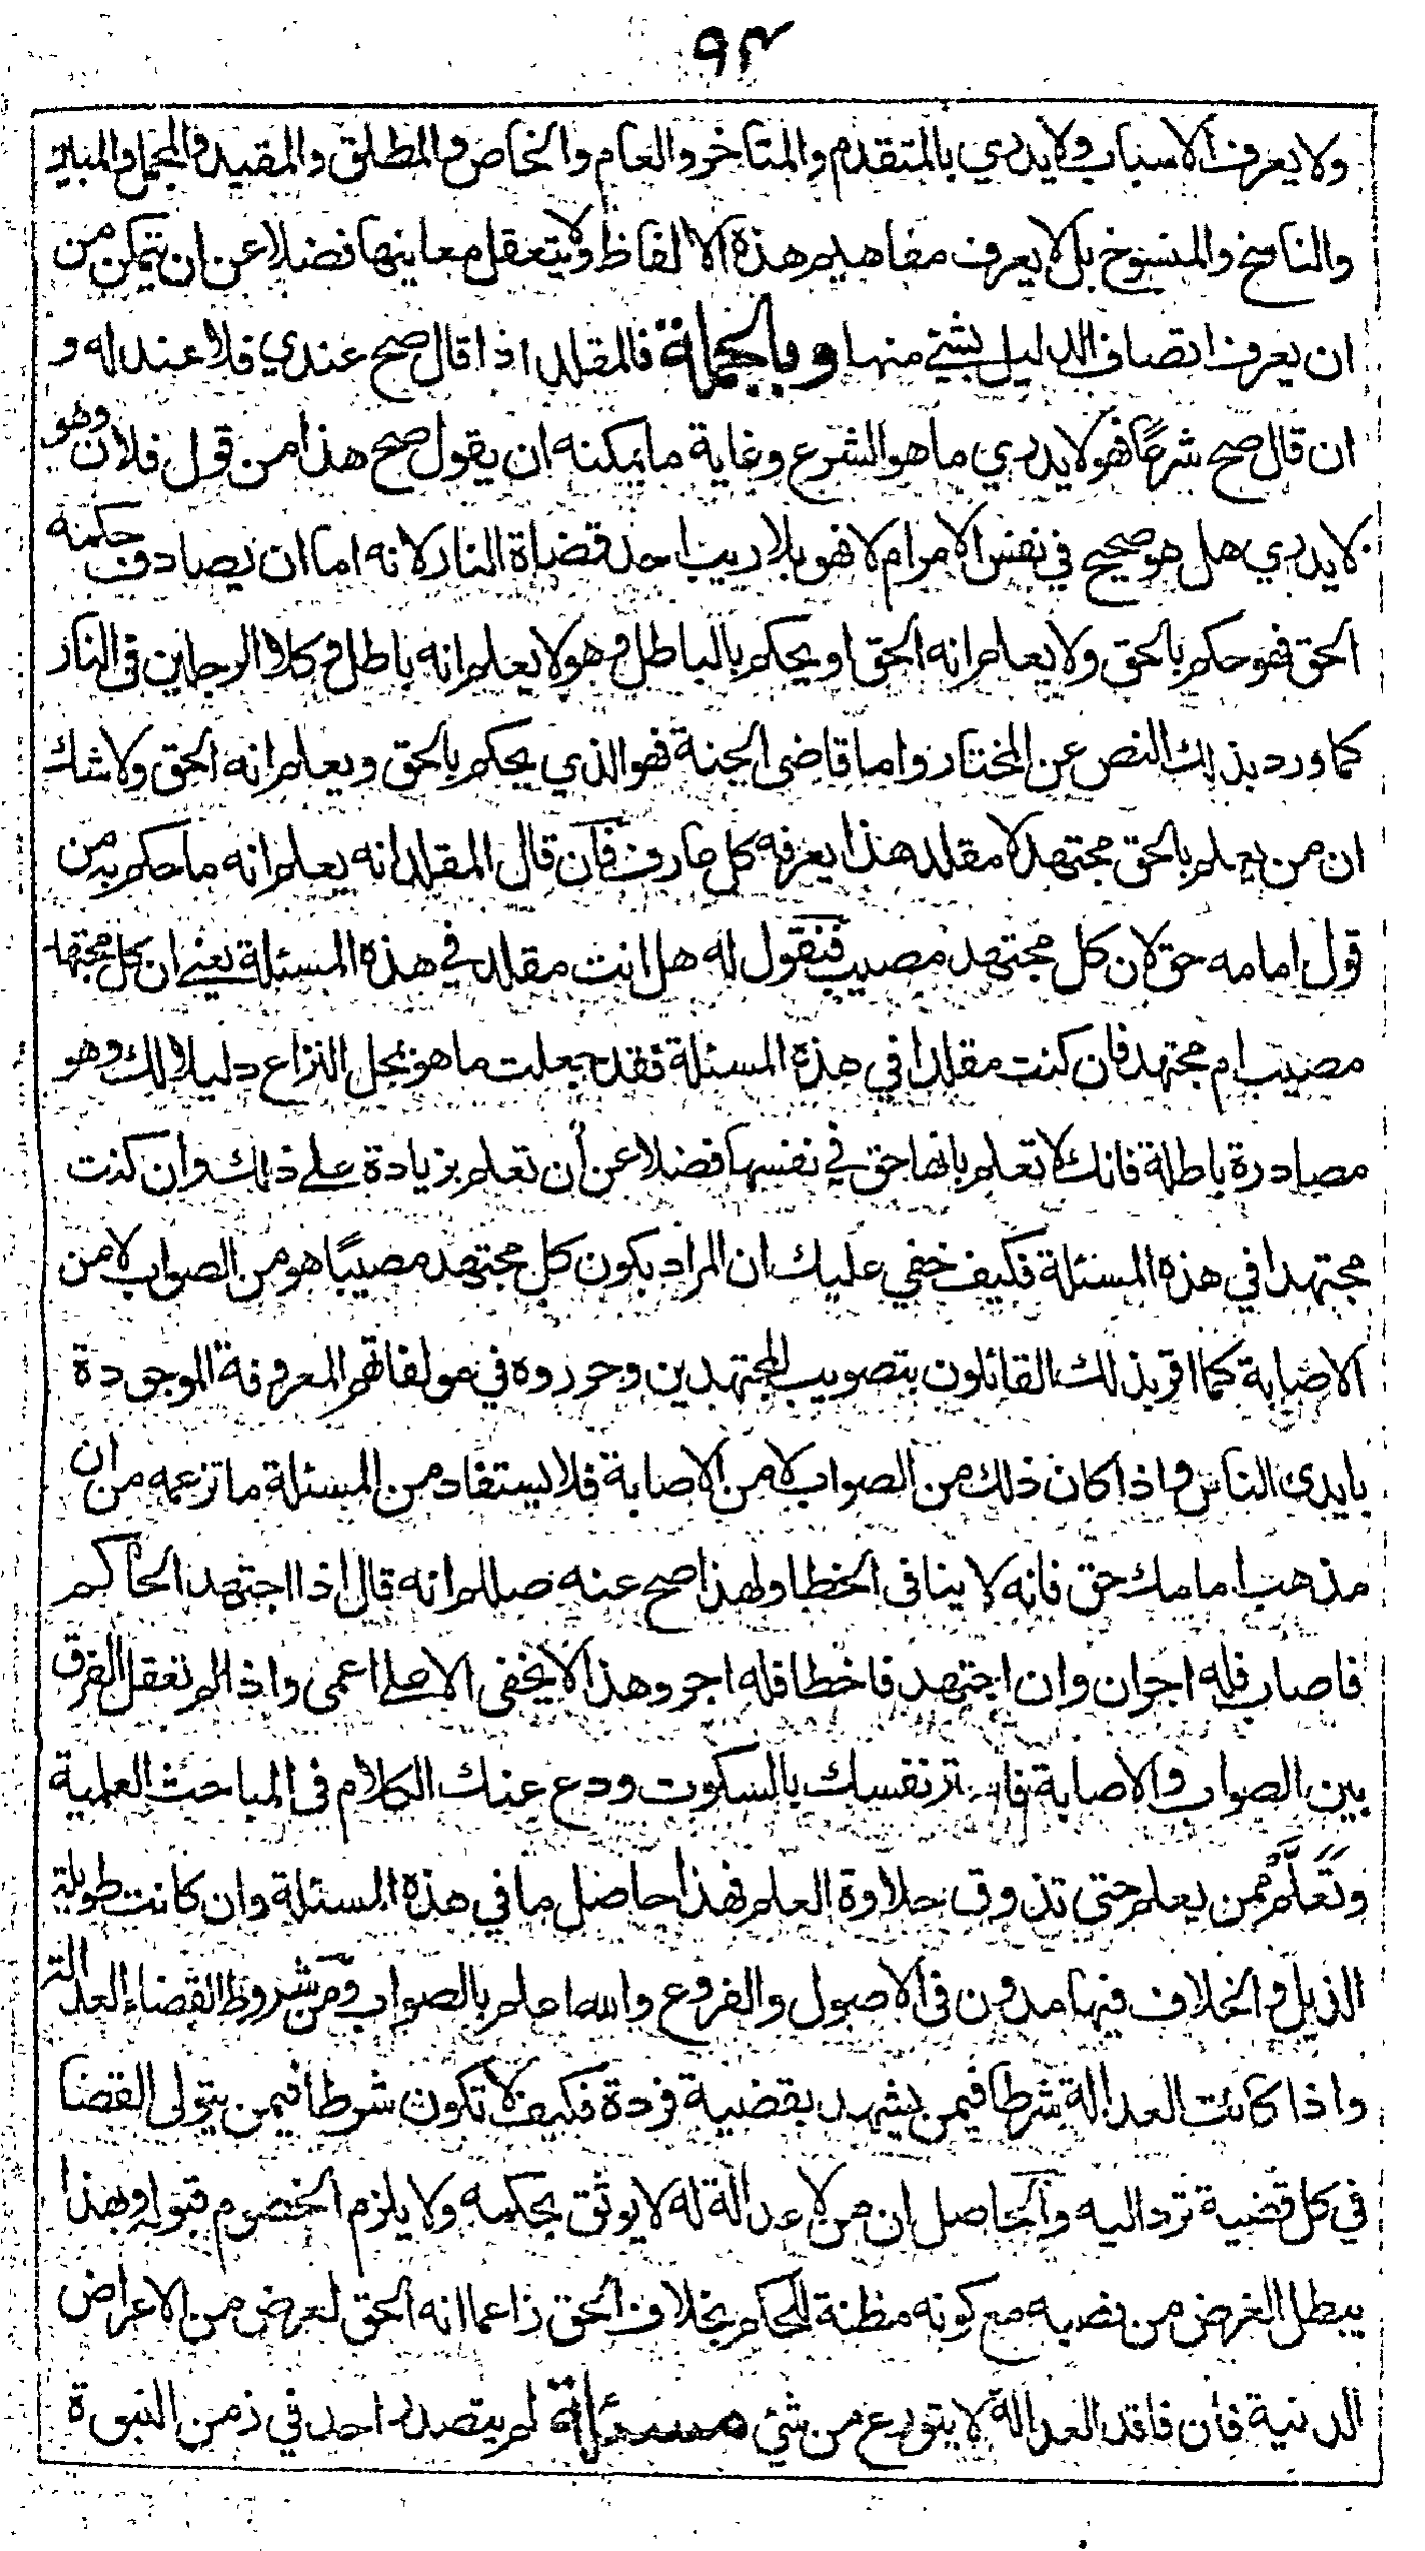 ٩٣
ولا يعرف الاسباب ولا يدري بالمتقدم والمتاخر والعام والخاص والمطلق والمقيد والمجمل والمبين
والناسخ والمنسوخ بل لا يعرف مفاهيم هذة الالفاظ ولا يتعقل معاينها فضلا عن ان يتمكن من
ان يعرف اتصاف الدليل بشئ منها وبالجملة فالمقلد اذا قال صح عندي فلا عند له و
ان قال صح شرعًا فهو لا يدري ما هو الشرع وغاية ما يمكنه ان يقول صح هذا من قول فلان وهو
لا يدري هل هو صحيح في نفس الامر ام لا فهو بلا ريب احد قضاة النار لانه اما ان يصادف حكمه
الحق فهو حكم بالحق ولا يعلم انه الحق او يحكم بالباطل وهو لا يعلم انه باطل وكلا الرجلين في النار
كما ورد بذلك النص عن المختار واما قاضى الجنة فهو الذي يحكم بالحق ويعلم انه الحق ولا شك
ان من يعلم بالحق مجتهد لا مقلد هذا يعرفه كل عارف فان قال المقلد انه يعلم انه ما حكم به من
قول امامه حق لان كل مجتهد مصيب فنقول له هل انت مقلد في هذه المسئلة يعني ان كل مجتهد
مصيب ام مجتهد فان كنت مقلدا في هذه المسئلة فقد جعلت ما هو محل النزاع دليلا لك وهو
مصادرة باطلة فانك لا تعلم بانها حق في نفسها فضلا عن أن تعلم بزيادة على ذلك وان كنت
مجتهدا في هذه المسئلة فكيف خفي عليك ان المراد بكون كل مجتهد مصيبًا هو من الصواب لا من
الاصابة كما اقر بذلك القائلون بتصويب المجتهدين وحرروه في مولفاتهم المعروفة الموجودة
بايدى الناس واذا كان ذلك من الصواب لا من الاصابة فلا يستفاد من المسئلة ما تزعمه من ان
مذهب امامك حق فانه لا ينافى الخطا ولهذا صح عنه صللم انه قال اذا اجتهد الحاكم
فاصاب فله اجران وان اجتهد فاخطا فله اجر وهذا لا يخفى الا على اعمى واذا لم تعقل الفرق
بين الصواب والاصابة فاستر نفسك بالسكوت ودع عنك الكلام فى المباحث العلمية
وتَعَلَّمْ ممن يعلم حتى تذوق حلاوة العلم فهذا حاصل ما في هذه المسئلة وان كانت طويلة
الذيل والخلاف فيها مدون فى الاصول والفروع والله اعلم بالصواب ومن شروط القضاء العدالة
واذا كانت العدالة شرطا فيمن يشهد بقضية فردة فكيف لا تكون شرطا فيمن يتولى القضا
في كل قضية ترد اليه والحاصل ان من لا عدالة له لا يوثق بحكمه ولا يلزم الخصوم قبوله وبهذا
يبطل الغرض من نصبه مع كونه مظنة للحكم بخلاف الحق زاعما انه الحق لغرض من الاعراض
الدنية فان فاقد العدالة لا يتورع من شئ مسئلة لم يتصدر احد في زمن النبوة